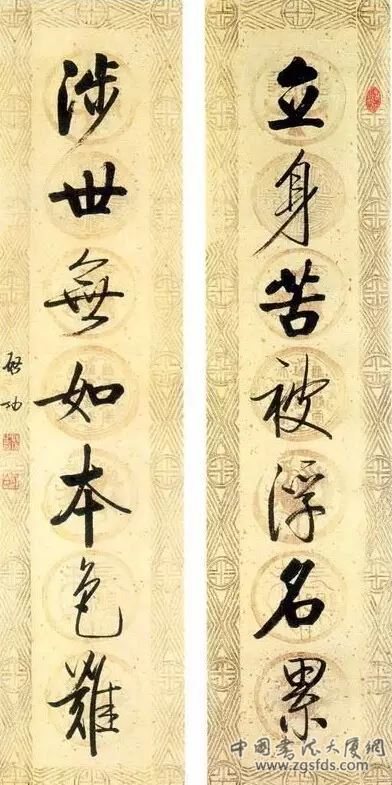 立身苦被浮名累
涉世無如本色難
啓功
中國書法大厦網
www.zgsfds.com